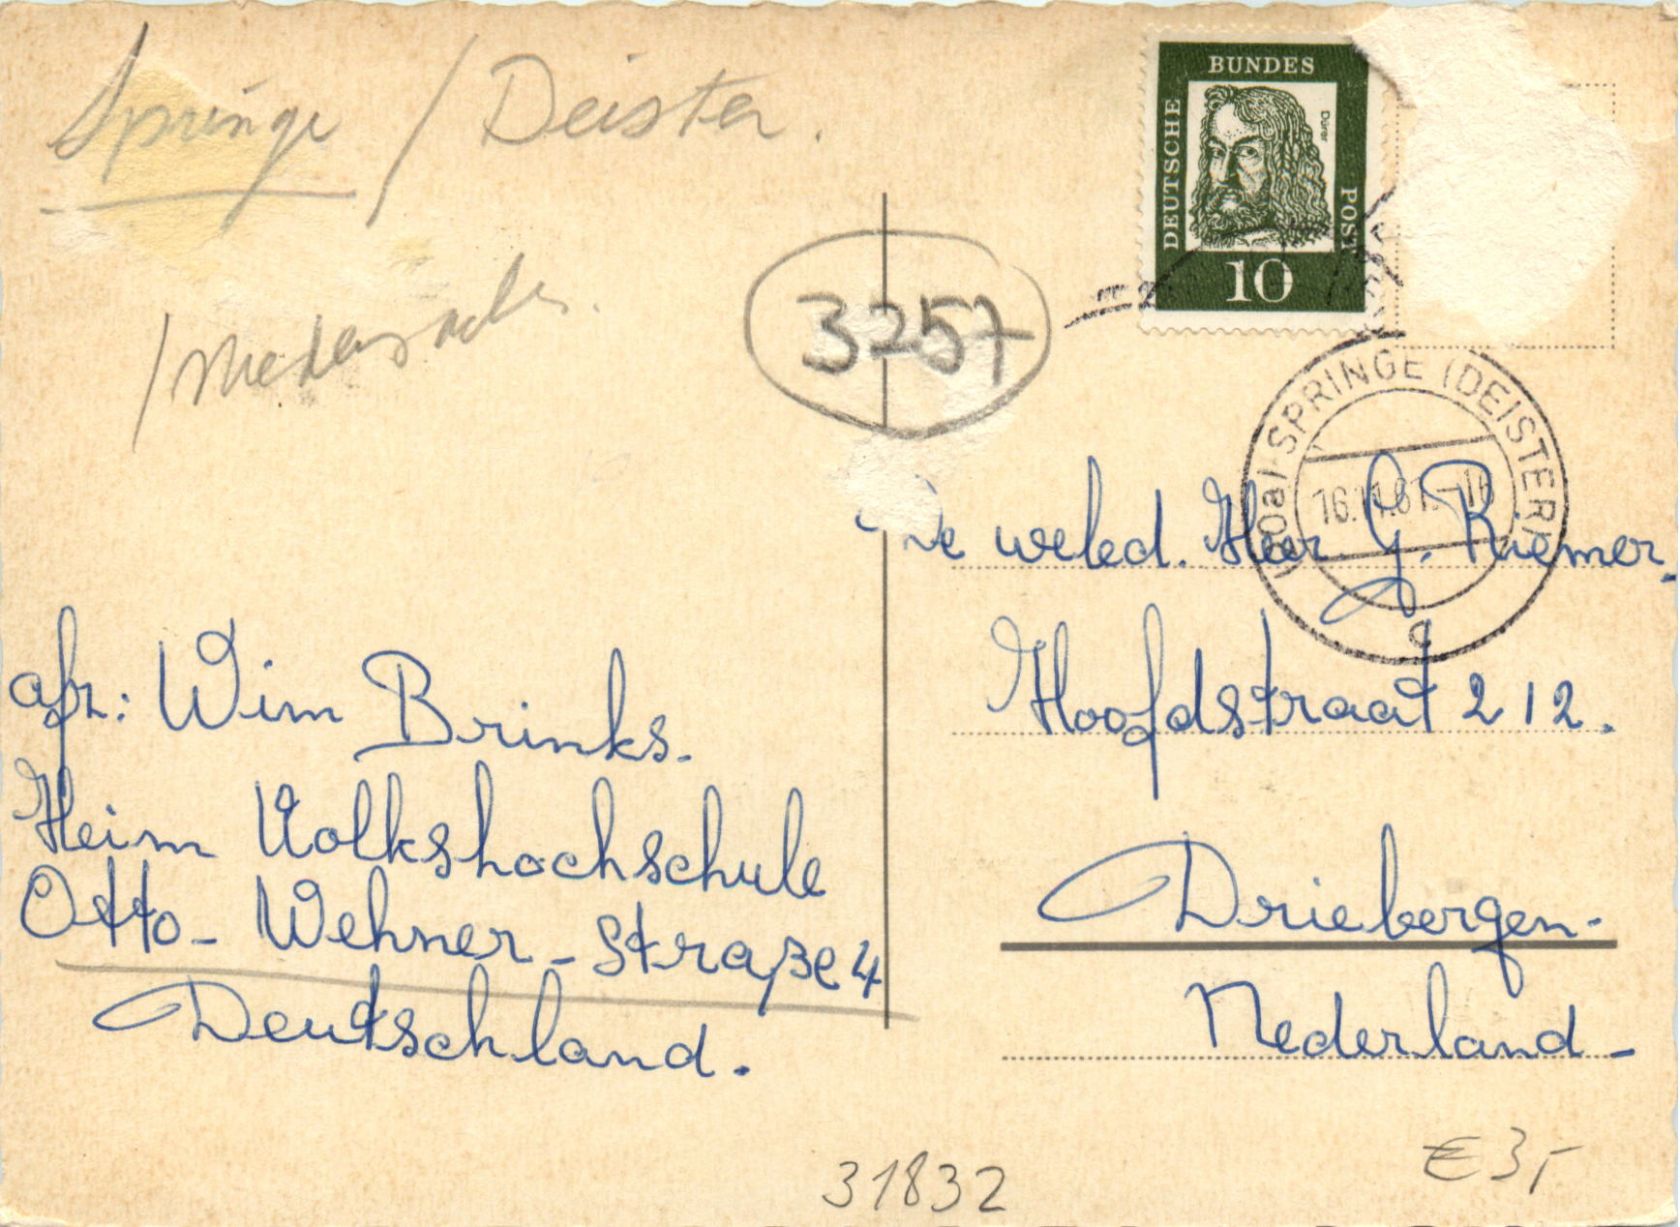 Springe / Deister.
/ Niedersachs.
3257
DEUTSCHE BUNDES POST
Dürer
10
SPRINGE (DEISTER)
16.11.61.-16
c
De weled. Heer G. Riemer.
Hoofdstraat 212.
Driebergen-
Nederland-
afz: Wim Brinks.
Heim Volkshochschule
Otto-Wehner-Straße 4
Deutschland.
31832
€ 3,-